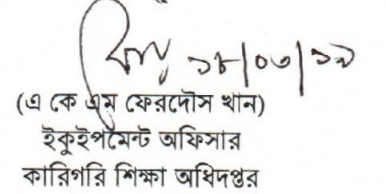 ১৮/০৩/১৯
(এ কে এম ফেরদৌস খান)
ইকুইপমেন্ট অফিসার
কারিগরি শিক্ষা অধিদপ্তর